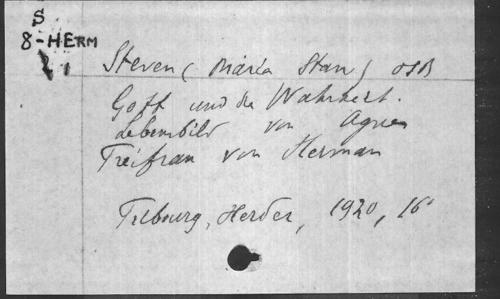 S
8-HERM
Steven (Maria Stan) OSB
Gott und die Wahrheit.
Lebensbild von Agnes
Freifrau von Herman
Friburg, Herder, 1920, 16°